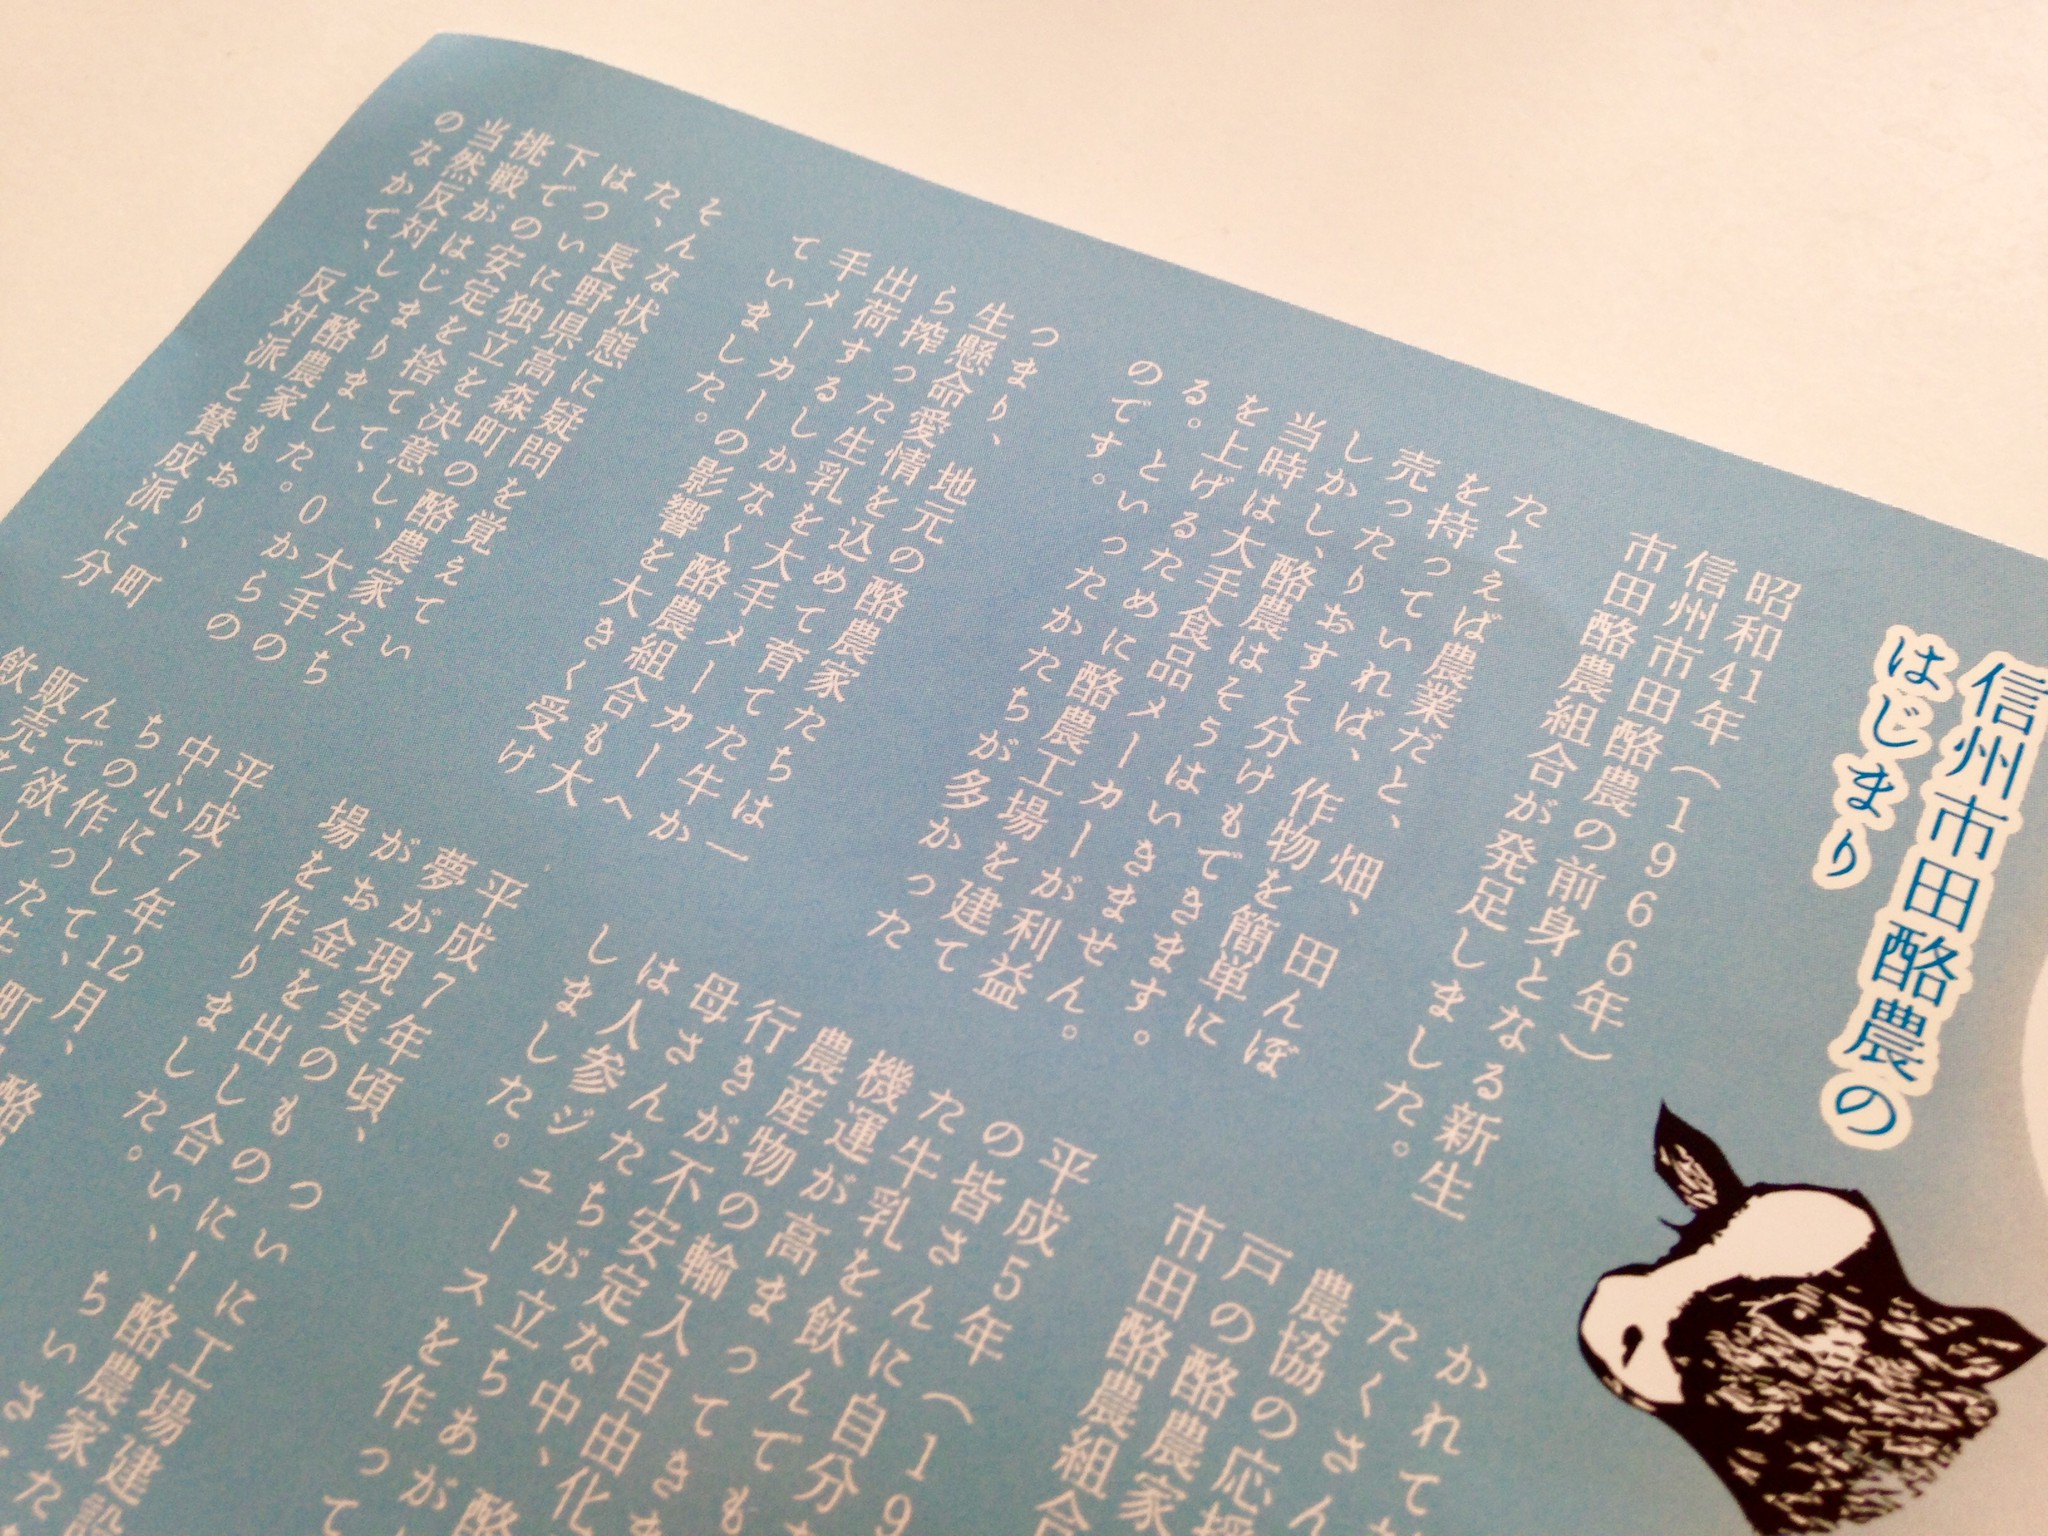 信州市田酪農の
はじまり
昭和41年（1966年）
信州市田酪農の前身となる新生
市田酪農組合が発足しました。
たとえば農業だと、畑、田んぼ
を持っていれば、作物を簡単に
売ったりおすそ分けもできます。
しかし、酪農はそうはいきません。
当時は大手食品メーカーが利益
を上げるために酪農工場を建て
る。といったかたちが多かった
のです。
つまり、地元の酪農家たちは一
生懸命愛情を込めて育てた牛か
ら搾った生乳を大手メーカーへ
出荷するしかなく酪農組合も大
手メーカーの影響を大きく受け
ていました。
そんな状態に疑問を覚えてい
た、長野県高森町の酪農家たち
はついに独立を決意し、大手の
下での安定を捨て、0からの
挑戦がはじまりました。
当然反対した酪農家もおり、町
のなかで、反対派と賛成派に分
かれて
たくさん
農協の応援
戸の酪農家
市田酪農組合
平成5年（19
の皆さんに自分
た牛乳を飲んでも
機運が高まってき
農産物の輸入自由化
行きが不安定な中、酪
母さんたちが立ちあが
は人参ジュースを作って
しました。
平成7年頃、ついに工場建設
夢が現実のものに！酪農家た
がお金を出し合い、ちいさ
場を作りました。
平成7年12月、
中心にして、
ちの作った
んで欲し
販売
飲